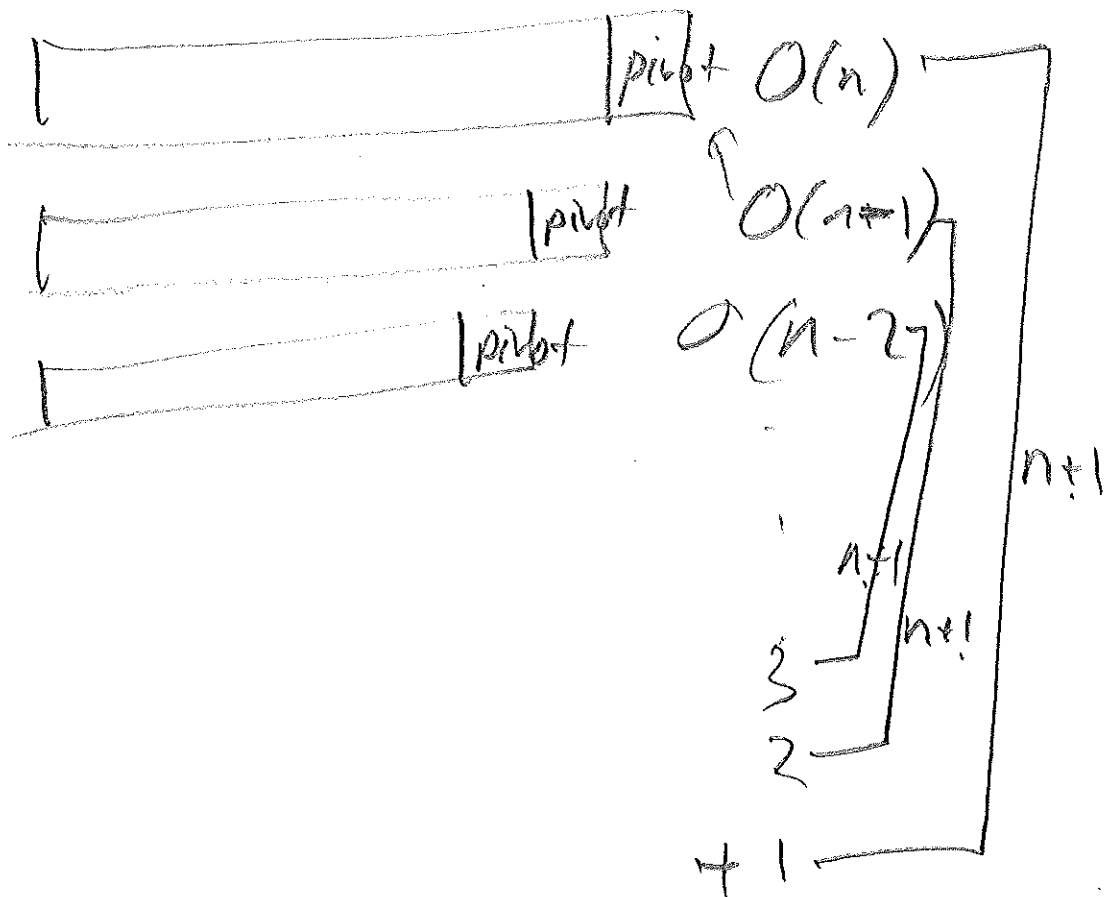 pivot O(n)
pivot O(n-1)
pivot O(n-2)
n+1
n+1
n+1
3
2
+ 1